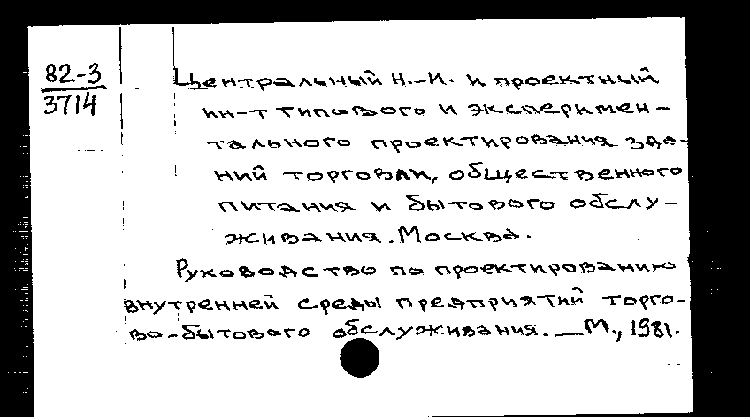 82-3
3714
Центральный Н.-И. и проектный
ин-т типового и эксперимен-
тального проектирования зда-
ний торговли, общественного
питания и бытового обслу-
живания. Москва.
Руководство по проектированию
внутренней среды предприятий торго-
во-бытового обслуживания. — М., 1981.